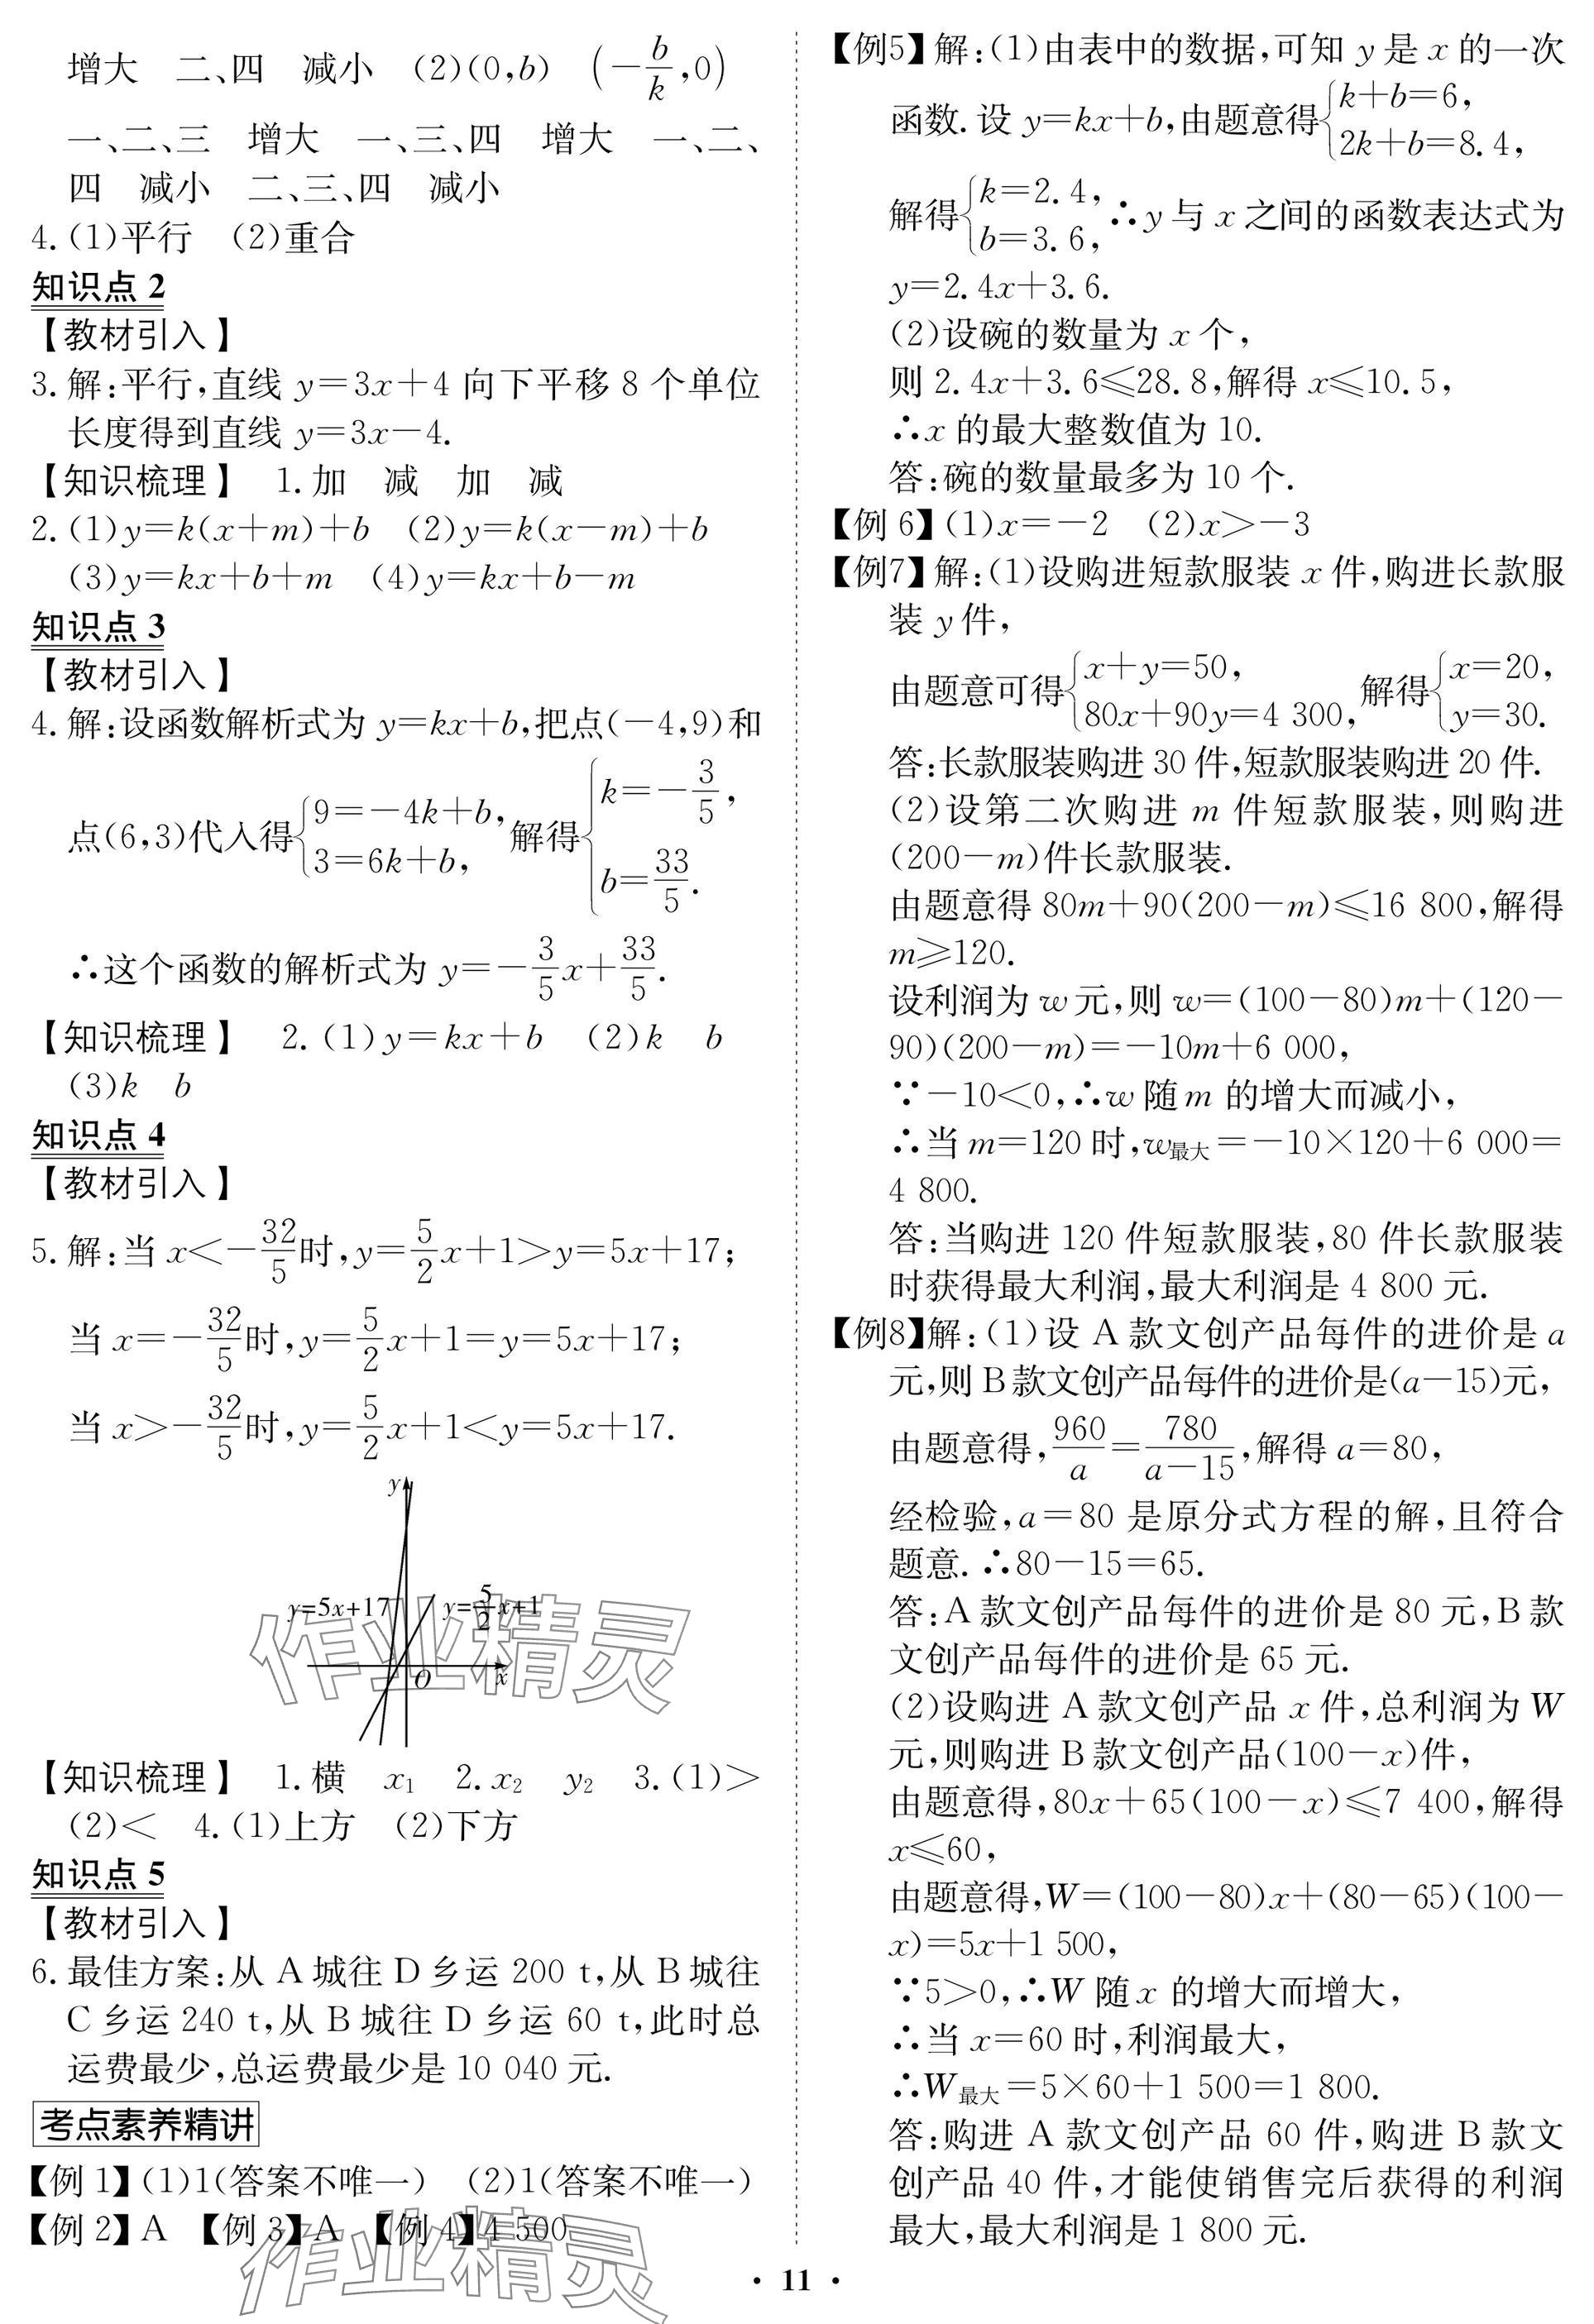 增大　二、四　减小　(2)(0,b)　(-b/k,0)
一、二、三　增大　一、三、四　增大　一、二、
四　减小　二、三、四　减小
4.(1)平行　(2)重合
知识点 2
【教材引入】
3.解:平行,直线 y=3x+4 向下平移 8 个单位
长度得到直线 y=3x-4.
【知识梳理】　1.加　减　加　减
2.(1)y=k(x+m)+b　(2)y=k(x-m)+b
(3)y=kx+b+m　(4)y=kx+b-m
知识点 3
【教材引入】
4.解:设函数解析式为 y=kx+b,把点(-4,9)和
点(6,3)代入得{9=-4k+b, 3=6k+b, 解得{k=-3/5, b=33/5.
∴这个函数的解析式为 y=-3/5x+33/5.
【知识梳理】　2.(1)y=kx+b　(2)k　b
(3)k　b
知识点 4
【教材引入】
5.解:当 x<-32/5时,y=5/2x+1>y=5x+17;
当 x=-32/5时,y=5/2x+1=y=5x+17;
当 x>-32/5时,y=5/2x+1<y=5x+17.
y
y=5x+17　y=5/2x+1
O　x
作业精灵
【知识梳理】　1.横　x₁　2.x₂　y₂　3.(1)>
(2)<　4.(1)上方　(2)下方
知识点 5
【教材引入】
6.最佳方案:从 A 城往 D 乡运 200 t,从 B 城往
C 乡运 240 t,从 B 城往 D 乡运 60 t,此时总
运费最少,总运费最少是 10 040 元.
考点素养精讲
【例 1】(1)1(答案不唯一)　(2)1(答案不唯一)
【例 2】A　【例 3】A　【例 4】4 500
作业精灵
【例5】解:(1)由表中的数据,可知 y 是 x 的一次
函数.设 y=kx+b,由题意得{k+b=6, 2k+b=8.4,
解得{k=2.4, b=3.6, ∴y 与 x 之间的函数表达式为
y=2.4x+3.6.
(2)设碗的数量为 x 个,
则 2.4x+3.6≤28.8,解得 x≤10.5,
∴x 的最大整数值为 10.
答:碗的数量最多为 10 个.
【例 6】(1)x=-2　(2)x>-3
【例7】解:(1)设购进短款服装 x 件,购进长款服
装 y 件,
由题意可得{x+y=50, 80x+90y=4 300, 解得{x=20, y=30.
答:长款服装购进 30 件,短款服装购进 20 件.
(2)设第二次购进 m 件短款服装,则购进
(200-m)件长款服装.
由题意得 80m+90(200-m)≤16 800,解得
m≥120.
设利润为 w 元,则 w=(100-80)m+(120-
90)(200-m)=-10m+6 000,
∵-10<0,∴w 随 m 的增大而减小,
∴当 m=120 时,w最大=-10×120+6 000=
4 800.
答:当购进 120 件短款服装,80 件长款服装
时获得最大利润,最大利润是 4 800 元.
【例8】解:(1)设 A 款文创产品每件的进价是 a
元,则 B 款文创产品每件的进价是(a-15)元,
由题意得,960/a=780/(a-15),解得 a=80,
经检验,a=80 是原分式方程的解,且符合
题意.∴80-15=65.
答:A 款文创产品每件的进价是 80 元,B 款
文创产品每件的进价是 65 元.
(2)设购进 A 款文创产品 x 件,总利润为 W
元,则购进 B 款文创产品(100-x)件,
由题意得,80x+65(100-x)≤7 400,解得
x≤60,
由题意得,W=(100-80)x+(80-65)(100-
x)=5x+1 500,
∵5>0,∴W 随 x 的增大而增大,
∴当 x=60 时,利润最大,
∴W最大=5×60+1 500=1 800.
答:购进 A 款文创产品 60 件,购进 B 款文
创产品 40 件,才能使销售完后获得的利润
最大,最大利润是 1 800 元.
· 11 ·